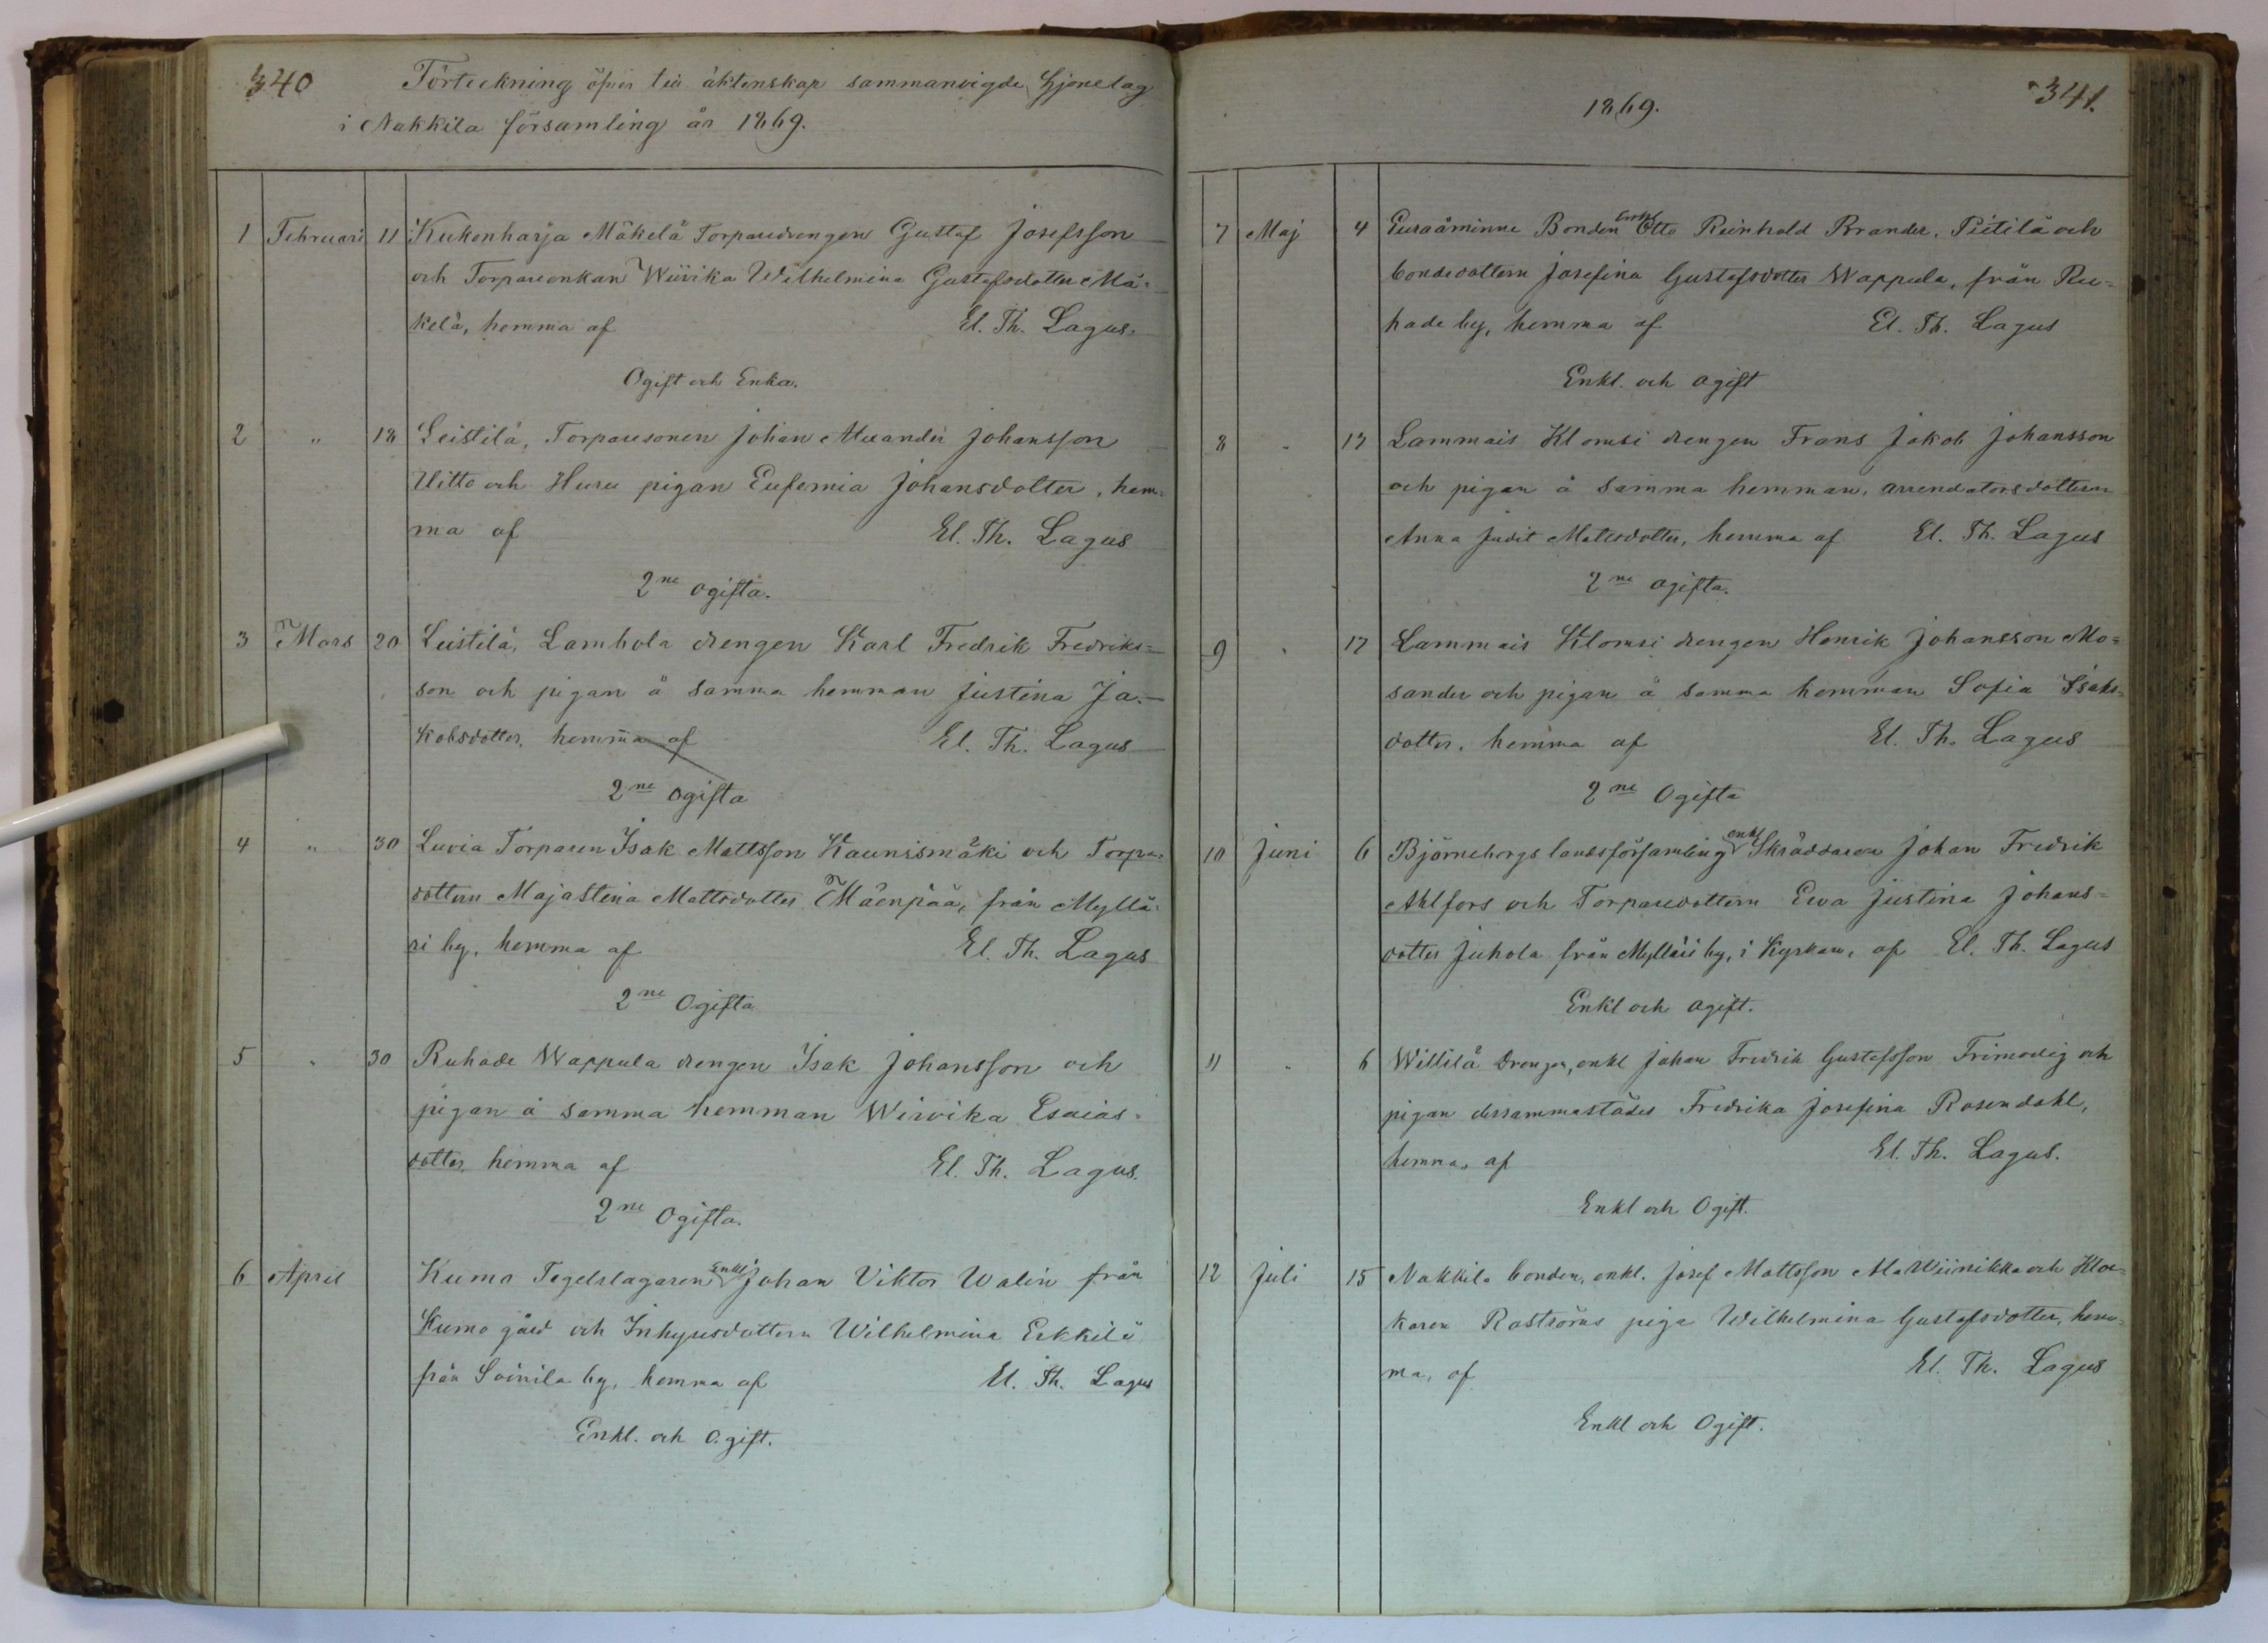 340
Förteckning öfver till äktenskap sammanvigde Hjonelag
i Nakkila församling år 1869.
1 Februari 11 Kukonharja Mäkelä Torparedrengen Gustaf Josefsson
och Torpareenkan Wiivika Wilhelmina Gustafsdotter Mä-
kelä, hemma af El. Th. Lagus.
Ogift och Enka.
2 " 18 Leistilä, Torparesonen Johan Alexander Johansson
Uitto och Huru pigan Eufemia Johansdotter, hem-
ma af El. Th. Lagus
2ne ogifta.
3 Mars 20 Leistilä, Lambola drengen Karl Fredrik Fredriks=
son och pigan å samma hemman Justina Ja-
kobsdotter, hemma af El. Th. Lagus
2ne ogifta
4 " 30 Luvia Torparen Isak Mattsson Kaunismäki och Torpar-
dottern Maja Stina Mattsdotter Mäenpää, från Myllä-
ri by, hemma af El. Th. Lagus
2ne Ogifta
5 " 30 Ruhade Wappula drengen Isak Johansson och
pigan å samma hemman Wiivika Esaias-
dotter, hemma af El. Th. Lagus.
2ne Ogifta.
6 April Kumo Tegelslagaren Enkl Johan Viktor Walin från
Kumo gård och Inhysesdottern Wilhelmina Erkkilä
från Soinila by, hemma af El. Th. Lagus
Enkl. och Ogift.
1869.
341.
7 Maj 4 Euraåminne Bonden Enkl Otto Reinhold Brander, Pietilä och
bondedottern Josefina Gustafsdotter Wappula, från Ru-
hade by, hemma af El. Th. Lagus
Enkl. och ogift
8 " 17 Lammais Klomsi drengen Frans Jakob Johansson
och pigan å samma hemman, arrendatorsdottern
Anna Judit Matsdotter, hemma af El. Th. Lagus
2ne ogifta.
9 " 17 Lammais Klomsi drengen Henrik Johansson Mo=
sander och pigan å samma hemman Sofia Isaks=
dotter, hemma af El. Th. Lagus
2ne Ogifta
10 Juni 6 Björneborgs landsförsamling enkl Skräddaren Johan Fredrik
Ahlfors och Torparedottern Eva Justina Johans=
dotter Juhola från Mylläri by, i Kyrkan, af El. Th. Lagus
Enkl och ogift.
11 " 6 Willilä Drengen, enkl Johan Fredrik Gustafsson Frimodig och
pigan dersammastädes Fredrika Josefina Rosendahl,
hemma, af El. Th. Lagus.
Enkl och Ogift.
12 Juli 15 Nakkila bonden, enkl. Josef Mattsson Ala Wiinikka och Kloc-
karen Roströms piga Wilhelmina Gustafsdotter, hem-
ma, af El. Th. Lagus
Enkl och Ogift.